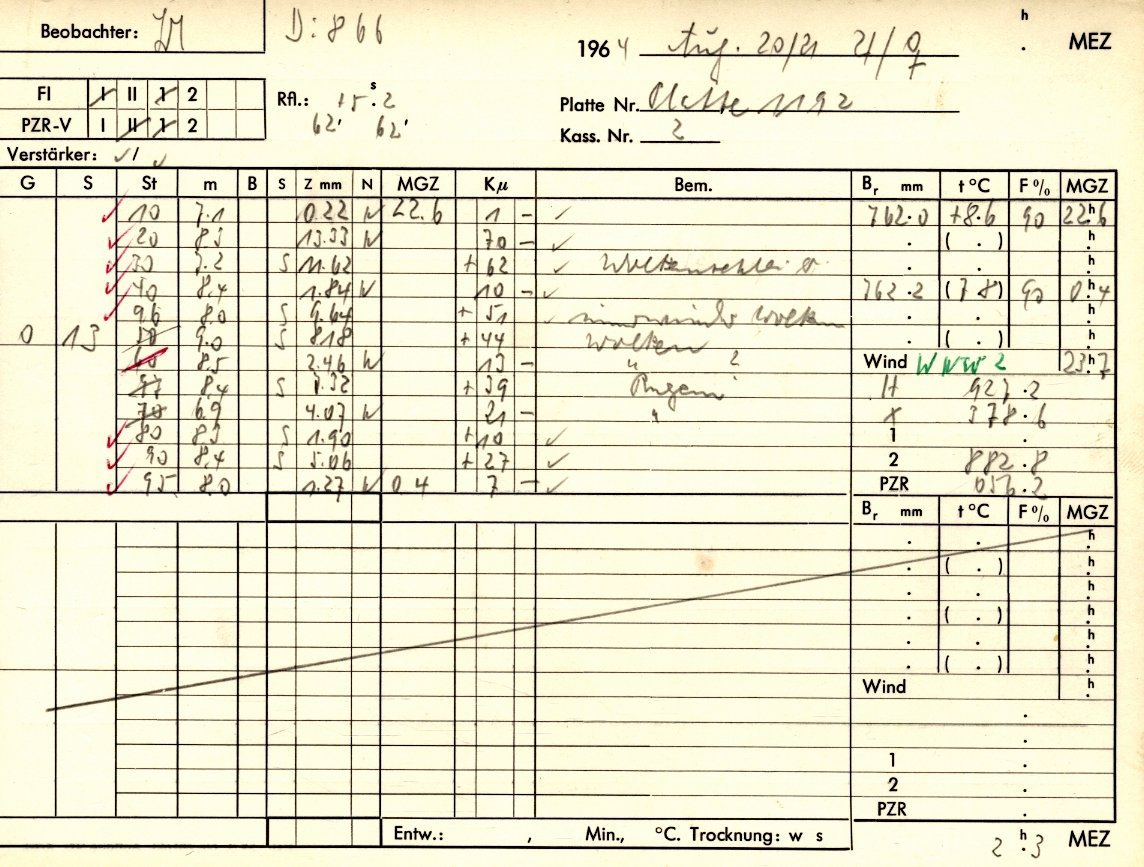 Beobachter: D: 866 h
1964 Aug. 20/21 . MEZ
FI I II 1 2 Rfl.: +5s.2 Platte Nr. 1192
PZR-V I II 1 2 62' 62' Kass. Nr. 2
Verstärker: ✓/✓
G S St m B S Z mm N MGZ Kμ Bem. Br mm t °C F % MGZ
✓ 10 7.1 0.22 N 22.6 1 – ✓ 762.0 +8.6 90 22h6
✓ 20 8.3 13.33 N 70 – ✓ . ( . ) h.
✓ 30 7.2 S 11.62 + 62 ✓ . . h.
✓ 40 8.4 1.84 N 10 – ✓ 762.2 (7 8) 90 0.h4
✓ 96 8.0 S 9.64 + 51 ✓ Wolken . . h.
0 13 50 9.0 S 8.18 + 44 Wolken . ( . ) h.
60 8.5 2.46 N 13 – " ? Wind WNW 2 23h7
8.4 S 7.32 + 39 H 927.2
70 6.9 4.07 N 21 – " 378.6
✓ 80 8.3 S 1.90 + 10 ✓ 1 .
✓ 90 8.4 S 5.06 + 27 ✓ 2 882.8
✓ 95 8.0 1.27 N 0 4 7 – ✓ PZR 056.2
Br mm t °C F % MGZ
. . h.
. ( . ) h.
. . h.
. ( . ) h.
. . h.
. ( . ) h.
Wind h.
.
.
1 .
2 .
PZR .
Entw.: , Min., °C. Trocknung: w s
2 h. 3 MEZ